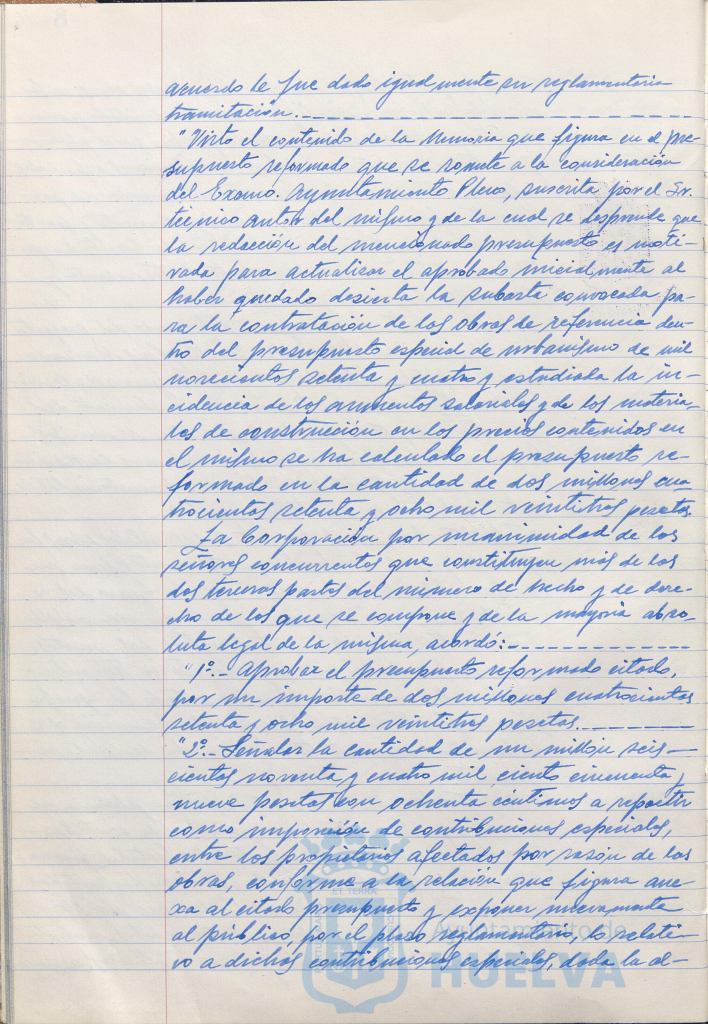 acuerdo le fue dado igualmente su reglamentaria
tramitación.
"Visto el contenido de la Memoria que figura en el pre-
supuesto reformado que se somete a la consideración
del Excmo. Ayuntamiento Pleno, suscrita por el Sr.
técnico autor del mismo y de la cual se desprende que
la redacción del mencionado presupuesto es moti-
vada para actualizar el aprobado inicialmente al
haber quedado desierta la subasta convocada pa-
ra la contratación de las obras de referencia den-
tro del presupuesto especial de urbanismo de mil
novecientos setenta y cuatro y estudiada la in-
cidencia de los aumentos salariales y de los materia-
les de construcción en los precios contenidos en
el mismo se ha calculado el presupuesto re-
formado en la cantidad de dos millones cua
trocientas setenta y ocho mil veintitres pesetas.
La Corporación por unanimidad de los
señores concurrentes que constituyen más de las
dos terceras partes del número de hecho y de dere-
cho de los que se compone y de la mayoría abso-
luta legal de la misma, acordó:
"1º.- Aprobar el presupuesto reformado citado,
por un importe de dos millones cuatrocientas
setenta y ocho mil veintitres pesetas.
"2º.- Señalar la cantidad de un millón seis-
cientas noventa y cuatro mil ciento cincuenta y
nueve pesetas con ochenta céntimos a repartir
como imposición de contribuciones especiales,
entre los propietarios afectados por razón de las
obras, conforme a la relación que figura ane-
xa al citado presupuesto y exponer nuevamente
al público, por el plazo reglamentario, lo relati-
vo a dichas contribuciones especiales, dada la al-
Ayuntamiento de
HUELVA